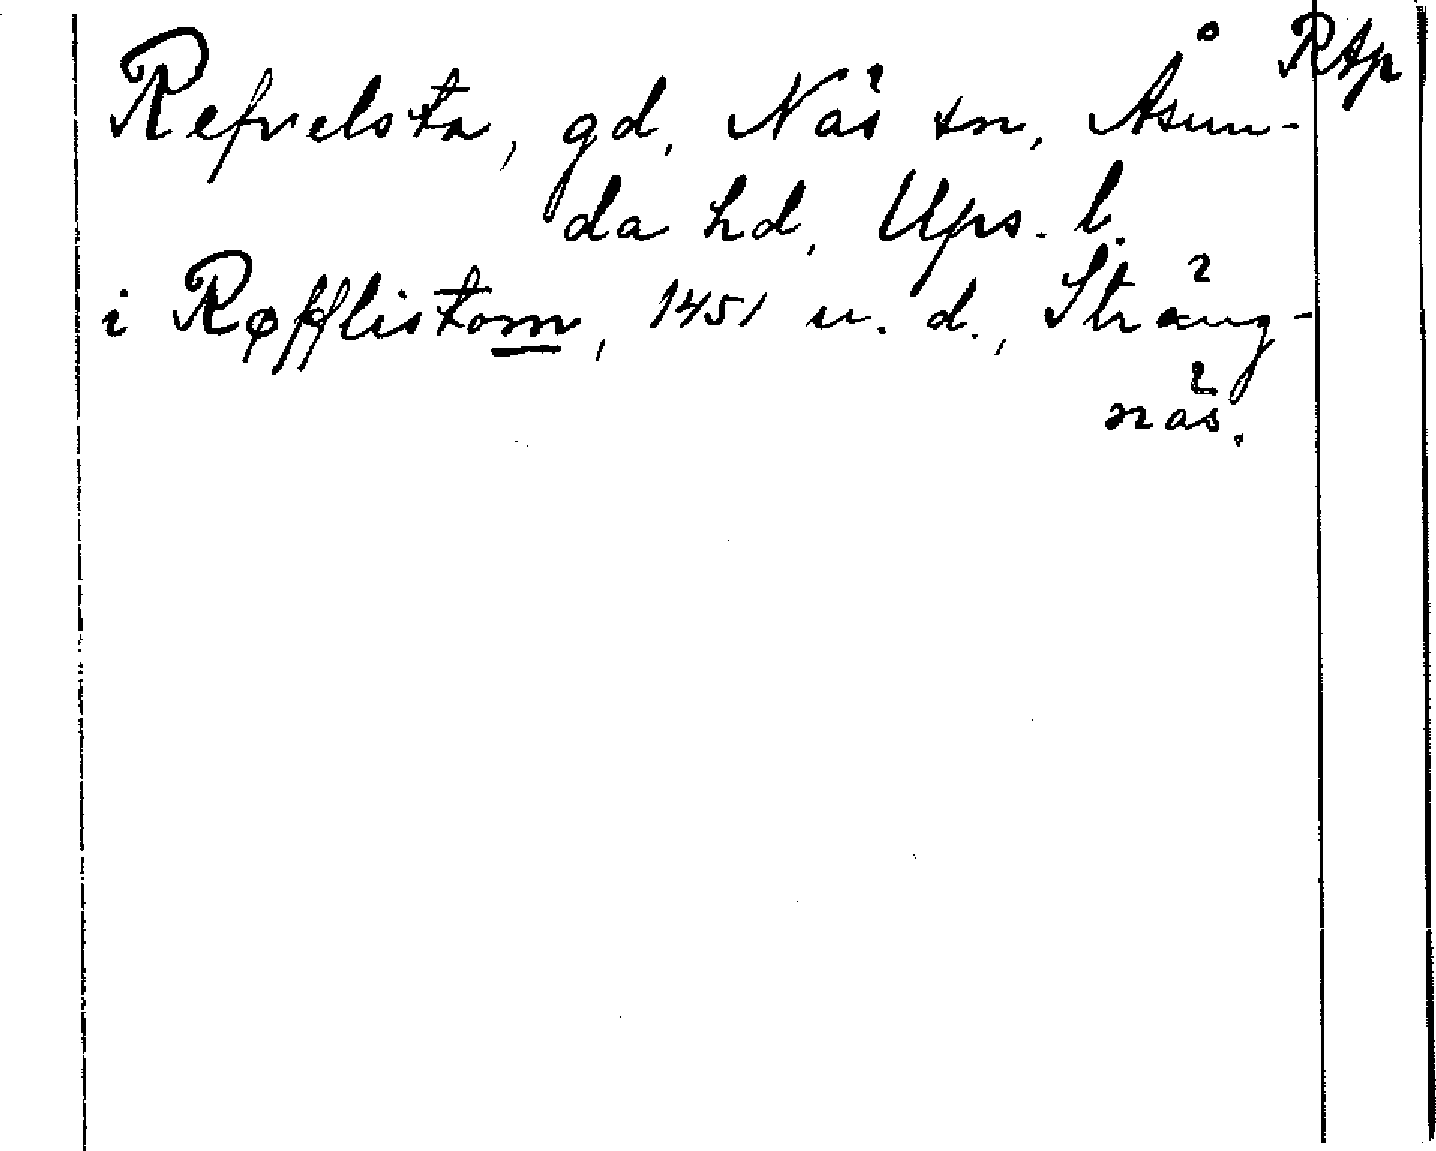 Rtp
Refvelsta, gd, Näs sn, Åsun-
da hd, Ups. l.
i Røfflistom, 1451 u. d., Sträng-
näs.